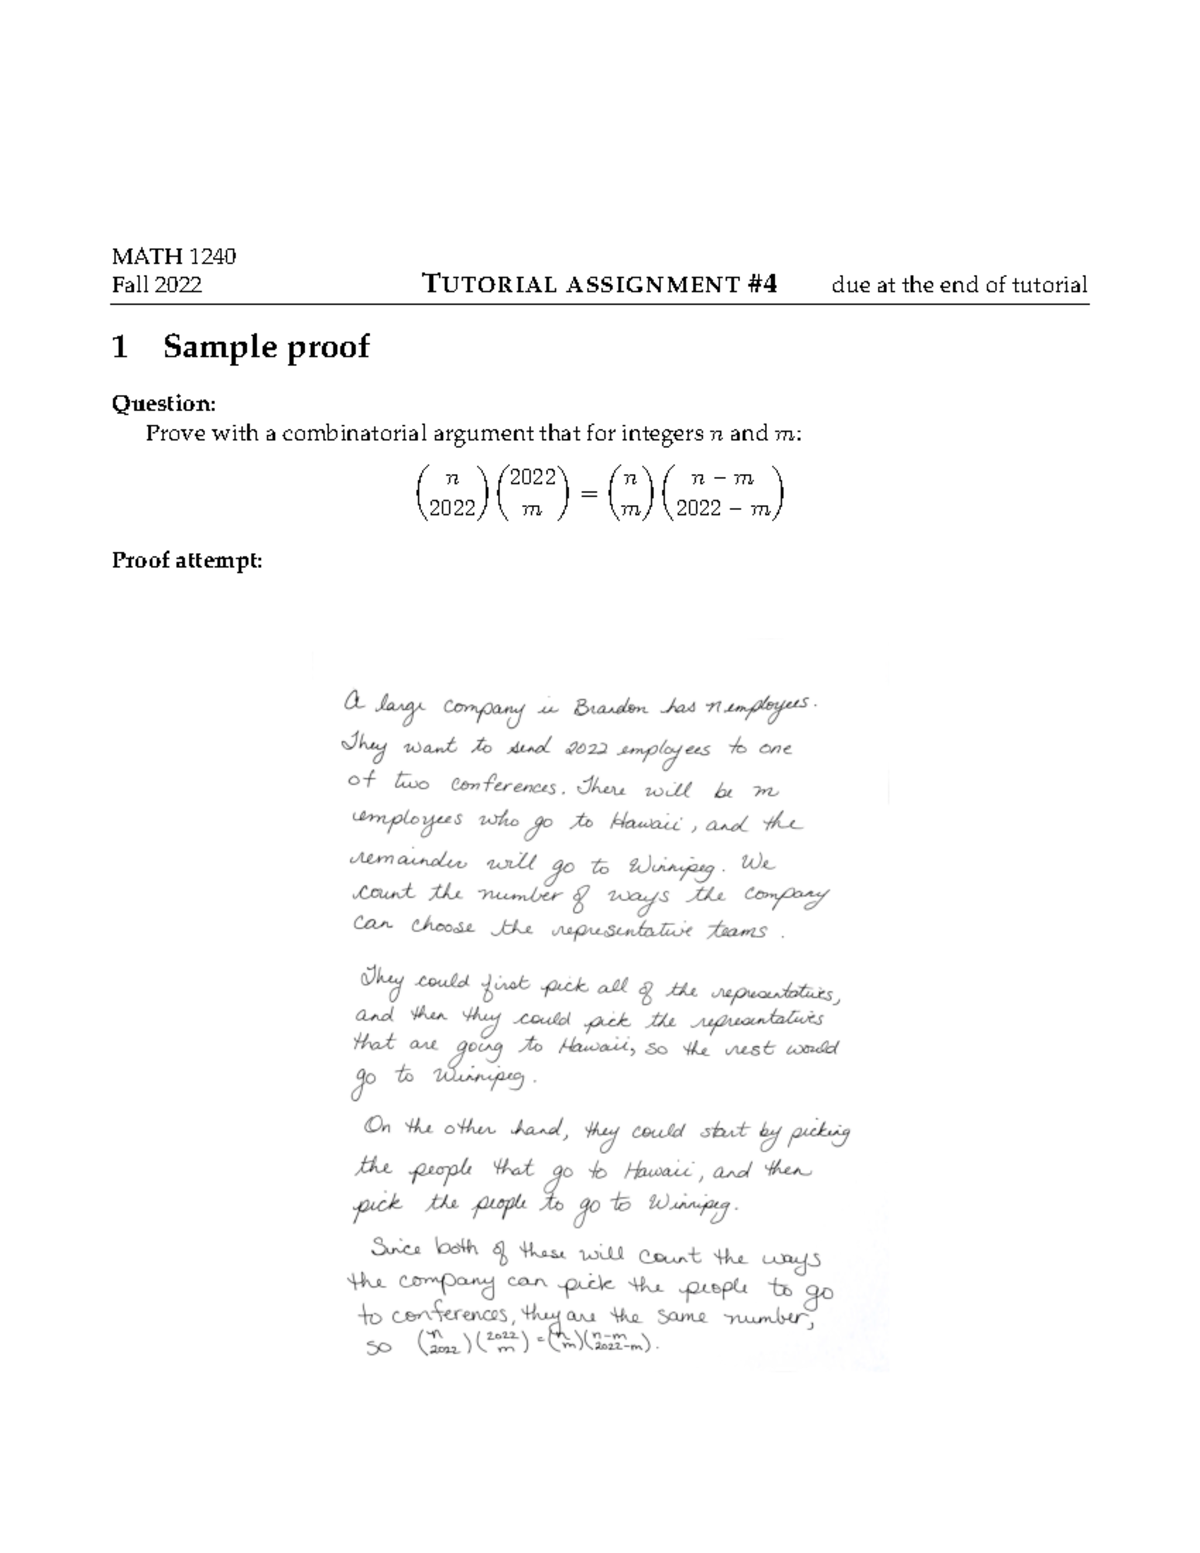 MATH 1240
Fall 2022 TUTORIAL ASSIGNMENT #4 due at the end of tutorial
1 Sample proof
Question:
Prove with a combinatorial argument that for integers n and m:
(n 2022)(2022 m) = (n m)(n − m 2022 − m)
Proof attempt:
A large company in Brandon has n employees.
They want to send 2022 employees to one
of two conferences. There will be m
employees who go to Hawaii, and the
remainder will go to Winnipeg. We
count the number of ways the company
can choose the representative teams.
They could first pick all of the representatives,
and then they could pick the representatives
that are going to Hawaii, so the rest would
go to Winnipeg.
On the other hand, they could start by picking
the people that go to Hawaii, and then
pick the people to go to Winnipeg.
Since both of these will count the ways
the company can pick the people to go
to conferences, they are the same number,
so (n 2022)(2022 m) = (n m)(n−m 2022−m).